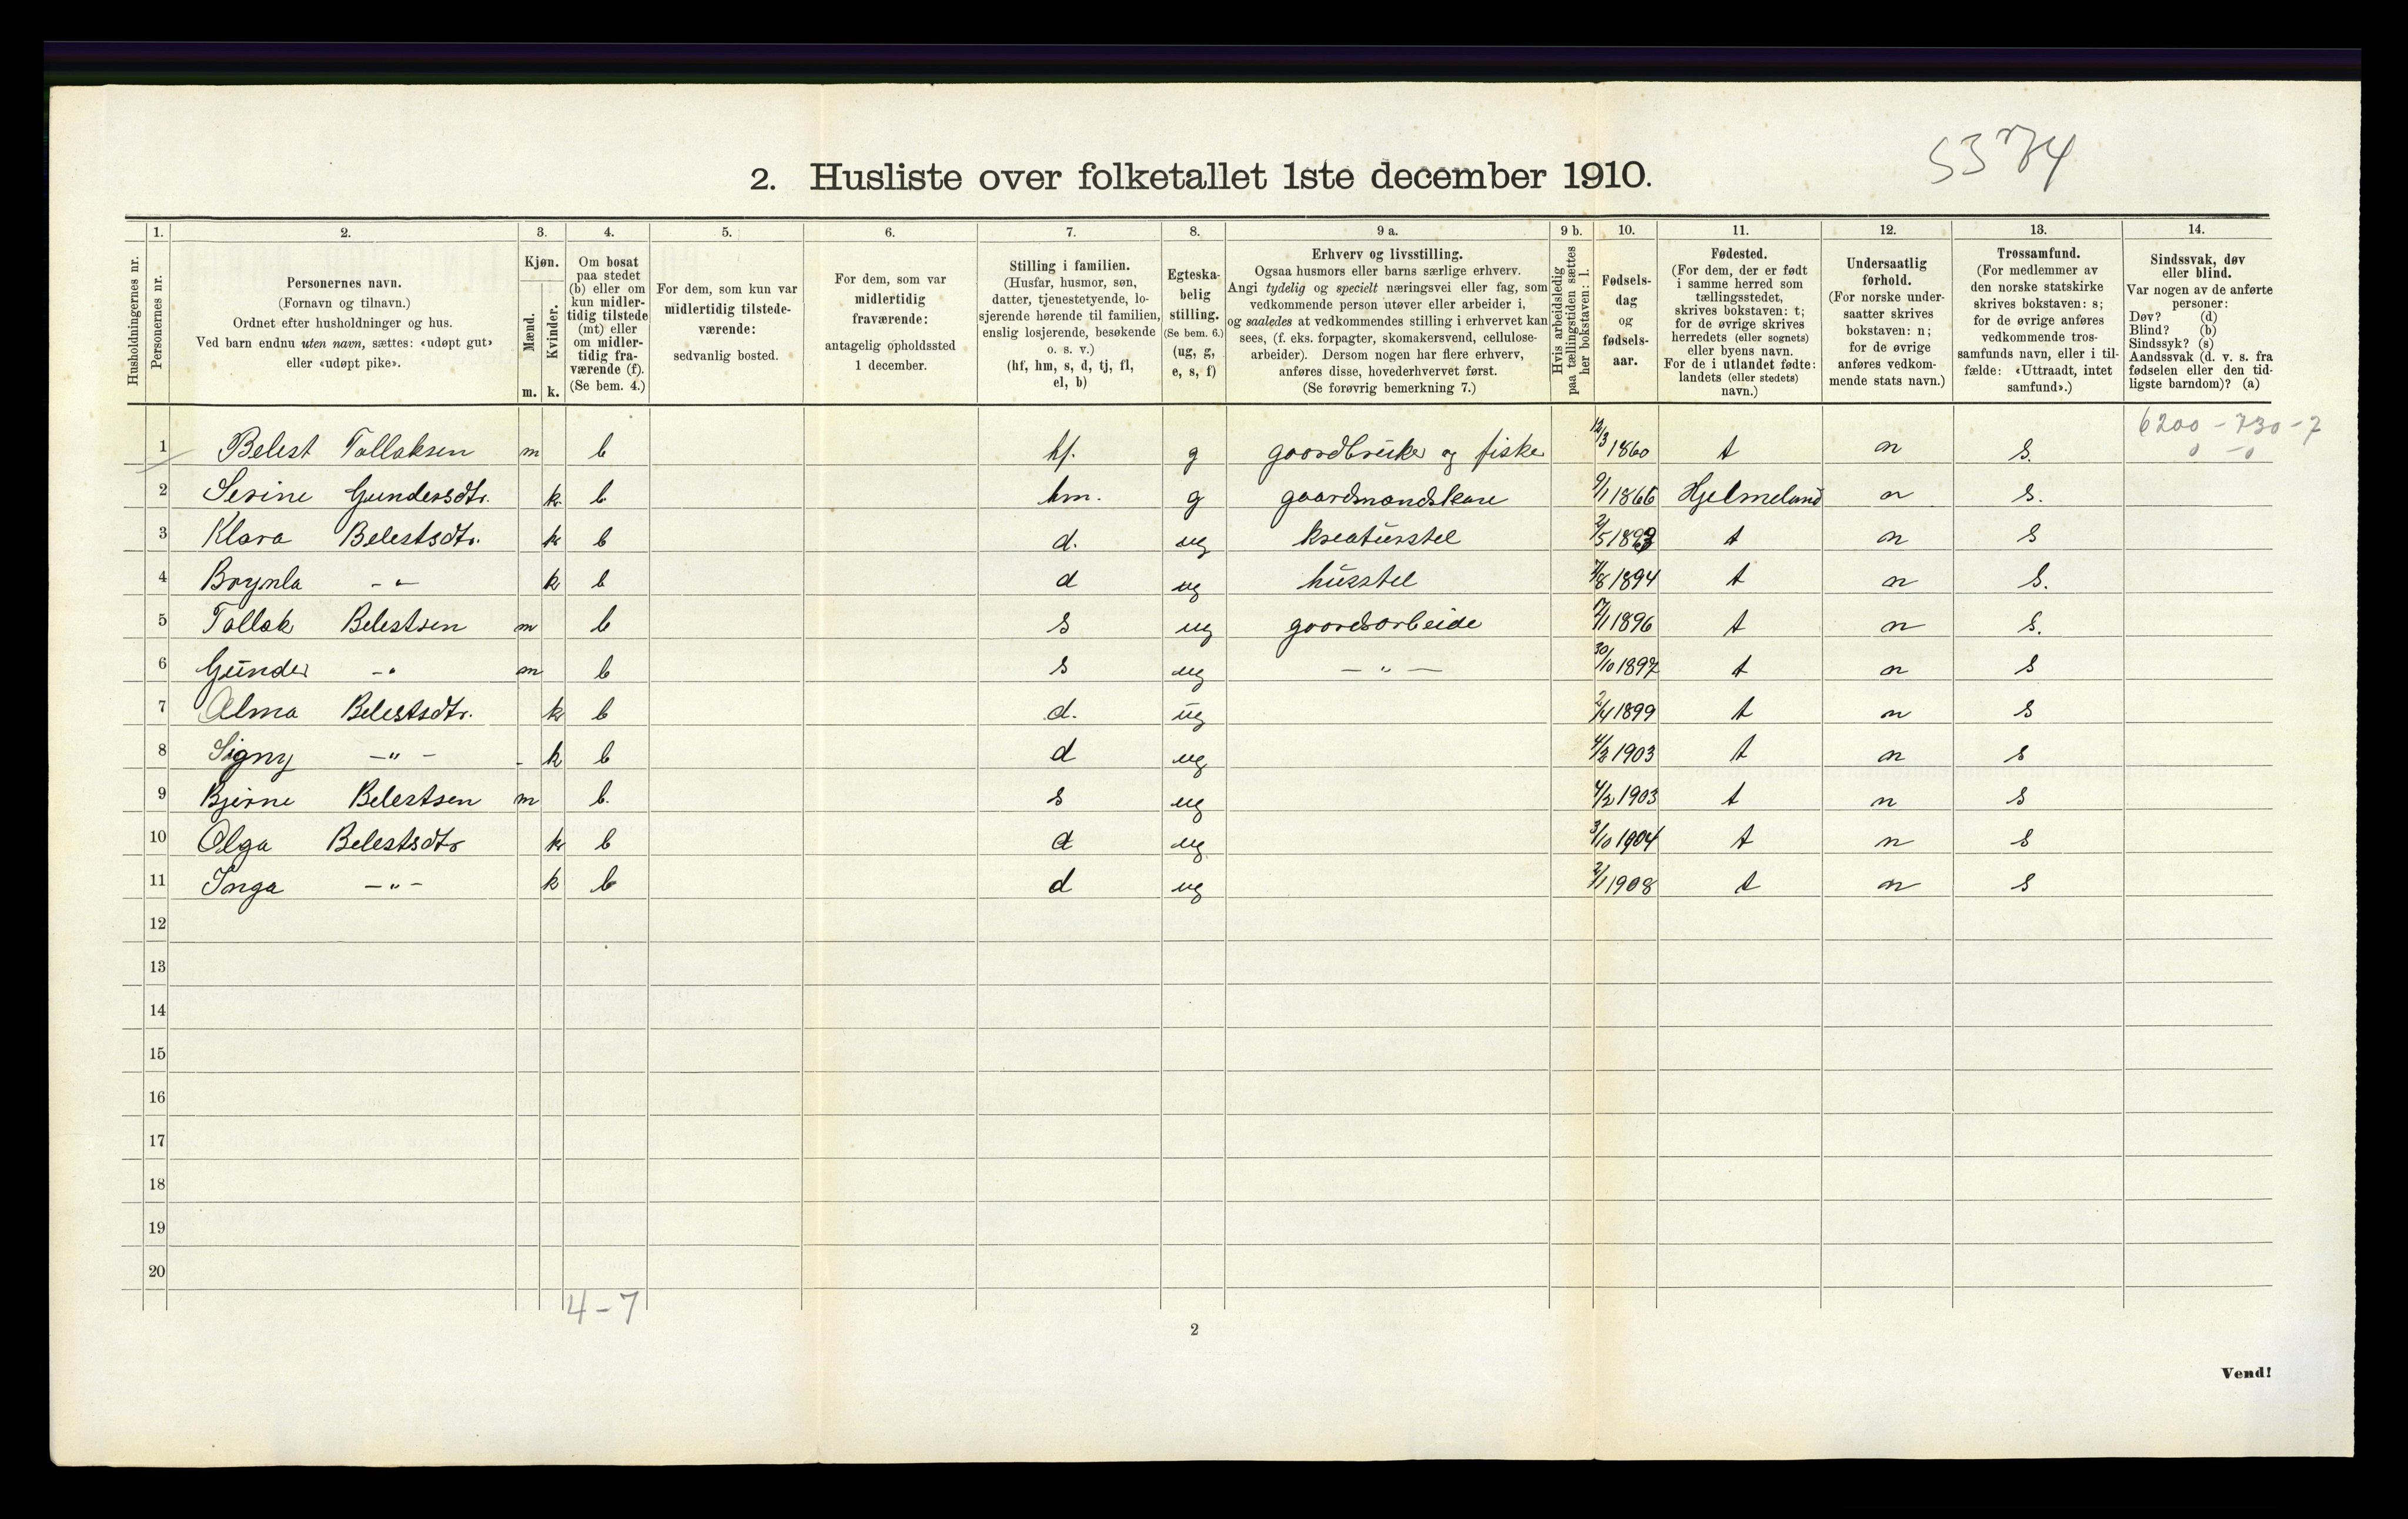 53 74
2. Husliste over folketallet 1ste december 1910.
Husholdningernes nr.
1. Personernes nr.
2. Personernes navn. (Fornavn og tilnavn.) Ordnet efter husholdninger og hus. Ved barn endnu uten navn, sættes: «udøpt gut» eller «udøpt pike».
3. Kjøn. Mænd. m. Kvinder. k.
4. Om bosat paa stedet (b) eller om kun midlertidig tilstede (mt) eller om midlertidig fraværende (f). (Se bem. 4.)
5. For dem, som kun var midlertidig tilstedeværende: sedvanlig bosted.
6. For dem, som var midlertidig fraværende: antagelig opholdssted 1 december.
7. Stilling i familien. (Husfar, husmor, søn, datter, tjenestetyende, losjerende hørende til familien, enslig losjerende, besøkende o. s. v.) (hf, hm, s, d, tj, fl, el, b)
8. Egteskabelig stilling. (Se bem. 6.) (ug, g, e, s, f)
9 a. Erhverv og livsstilling. Ogsaa husmors eller barns særlige erhverv. Angi tydelig og specielt næringsvei eller fag, som vedkommende person utøver eller arbeider i, og saaledes at vedkommendes stilling i erhvervet kan sees, (f. eks. forpagter, skomakersvend, cellulosearbeider). Dersom nogen har flere erhverv, anføres disse, hovederhvervet først. (Se forøvrig bemerkning 7.)
9 b. Hvis arbeidsledig paa tællingstiden sættes her bokstaven: l.
10. Fødselsdag og fødselsaar.
11. Fødested. (For dem, der er født i samme herred som tællingsstedet, skrives bokstaven: t; for de øvrige skrives herredets (eller sognets) eller byens navn. For de i utlandet fødte: landets (eller stedets) navn.)
12. Undersaatlig forhold. (For norske undersaatter skrives bokstaven: n; for de øvrige anføres vedkommende stats navn.)
13. Trossamfund. (For medlemmer av den norske statskirke skrives bokstaven: s; for de øvrige anføres vedkommende trossamfunds navn, eller i tilfælde: «Uttraadt, intet samfund».)
14. Sindssvak, døv eller blind. Var nogen av de anførte personer: Døv? (d) Blind? (b) Sindssyk? (s) Aandssvak (d. v. s. fra fødselen eller den tidligste barndom)? (a)
6200 - 730 - 7
0 - 0
1 Belest Tollaksen m b hf. g gaardbruker og fisker 12/3 1860 t n s.
2 Serine Gundersdtr. k b hm. g gaardmandskone 9/1 1866 Hjelmeland n s.
3 Klara Belestsdtr. k b d. ug kreaturstel 2/5 1893 t n s
4 Brynla - " - k b d ug husstel 7/8 1894 t n s.
5 Tollak Belestsen m b s ug gaardsarbeide 7/1 1896 t n s.
6 Gunder - " m b s ug - " - 30/10 1897 t n s
7 Alma Belestsdtr. k b d. ug 2/4 1899 t n s
8 Signy - " - - k b d ug 4/2 1903 t n s
9 Bjerne Belestsen m b. s ug 4/2 1903 t n s
10 Olga Belestsdtr k b d ug 3/10 1904 t n s
11 Inga - " - k b d ug 2/1 1908 t n s
12
13
14
15
16
17
18
19
20
4 - 7
2
Vend!